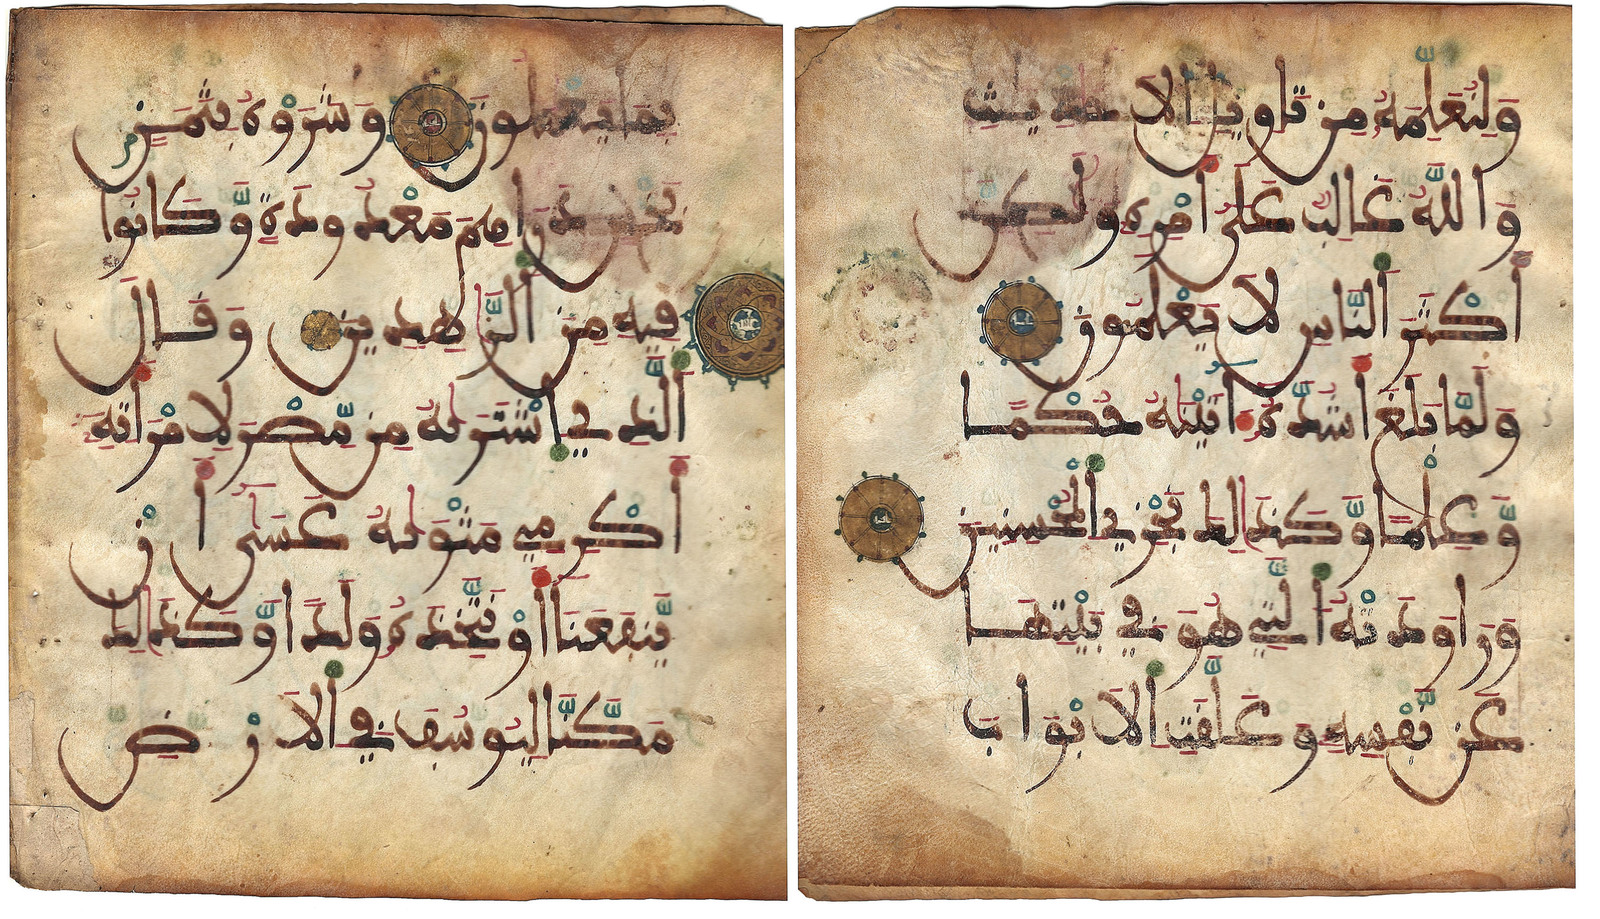 بِمَا يَعْمَلُونَ وَشَرَوْهُ بِثَمَنٍ
بَخْسٍ دَرَاهِمَ مَعْدُودَةٍ وَّكَانُوا
فِيهِ مِنَ الزَّاهِدِينَ وَقَالَ
الَّذِي اشْتَرٰىهُ مِن مِّصْرَ لِامْرَأَتِهِ
أَكْرِمِي مَثْوٰىهُ عَسَى أَنْ
يَّنفَعَنَا أَوْ نَتَّخِذَهُ وَلَدًا وَّكَذَلِكَ
مَكَّنَّا لِيُوسُفَ فِي الْأَرْضِ
وَلِنُعَلِّمَهُ مِن تَاوِيلِ الْأَحَادِيثِ
وَاللَّهُ غَالِبٌ عَلَى أَمْرِهِ وَلَكِنَّ
أَكْثَرَ النَّاسِ لَا يَعْلَمُونَ
وَلَمَّا بَلَغَ أَشُدَّهُ ءَاتَيْنَهُ حُكْمًا
وَّعِلْمًا وَّكَذَلِكَ نَجْزِي الْمُحْسِنِينَ
وَرَاوَدَتْهُ الَّتِي هُوَ فِي بَيْتِهَا
عَن نَّفْسِهِ وَغَلَّقَتِ الْأَبْوَابَ